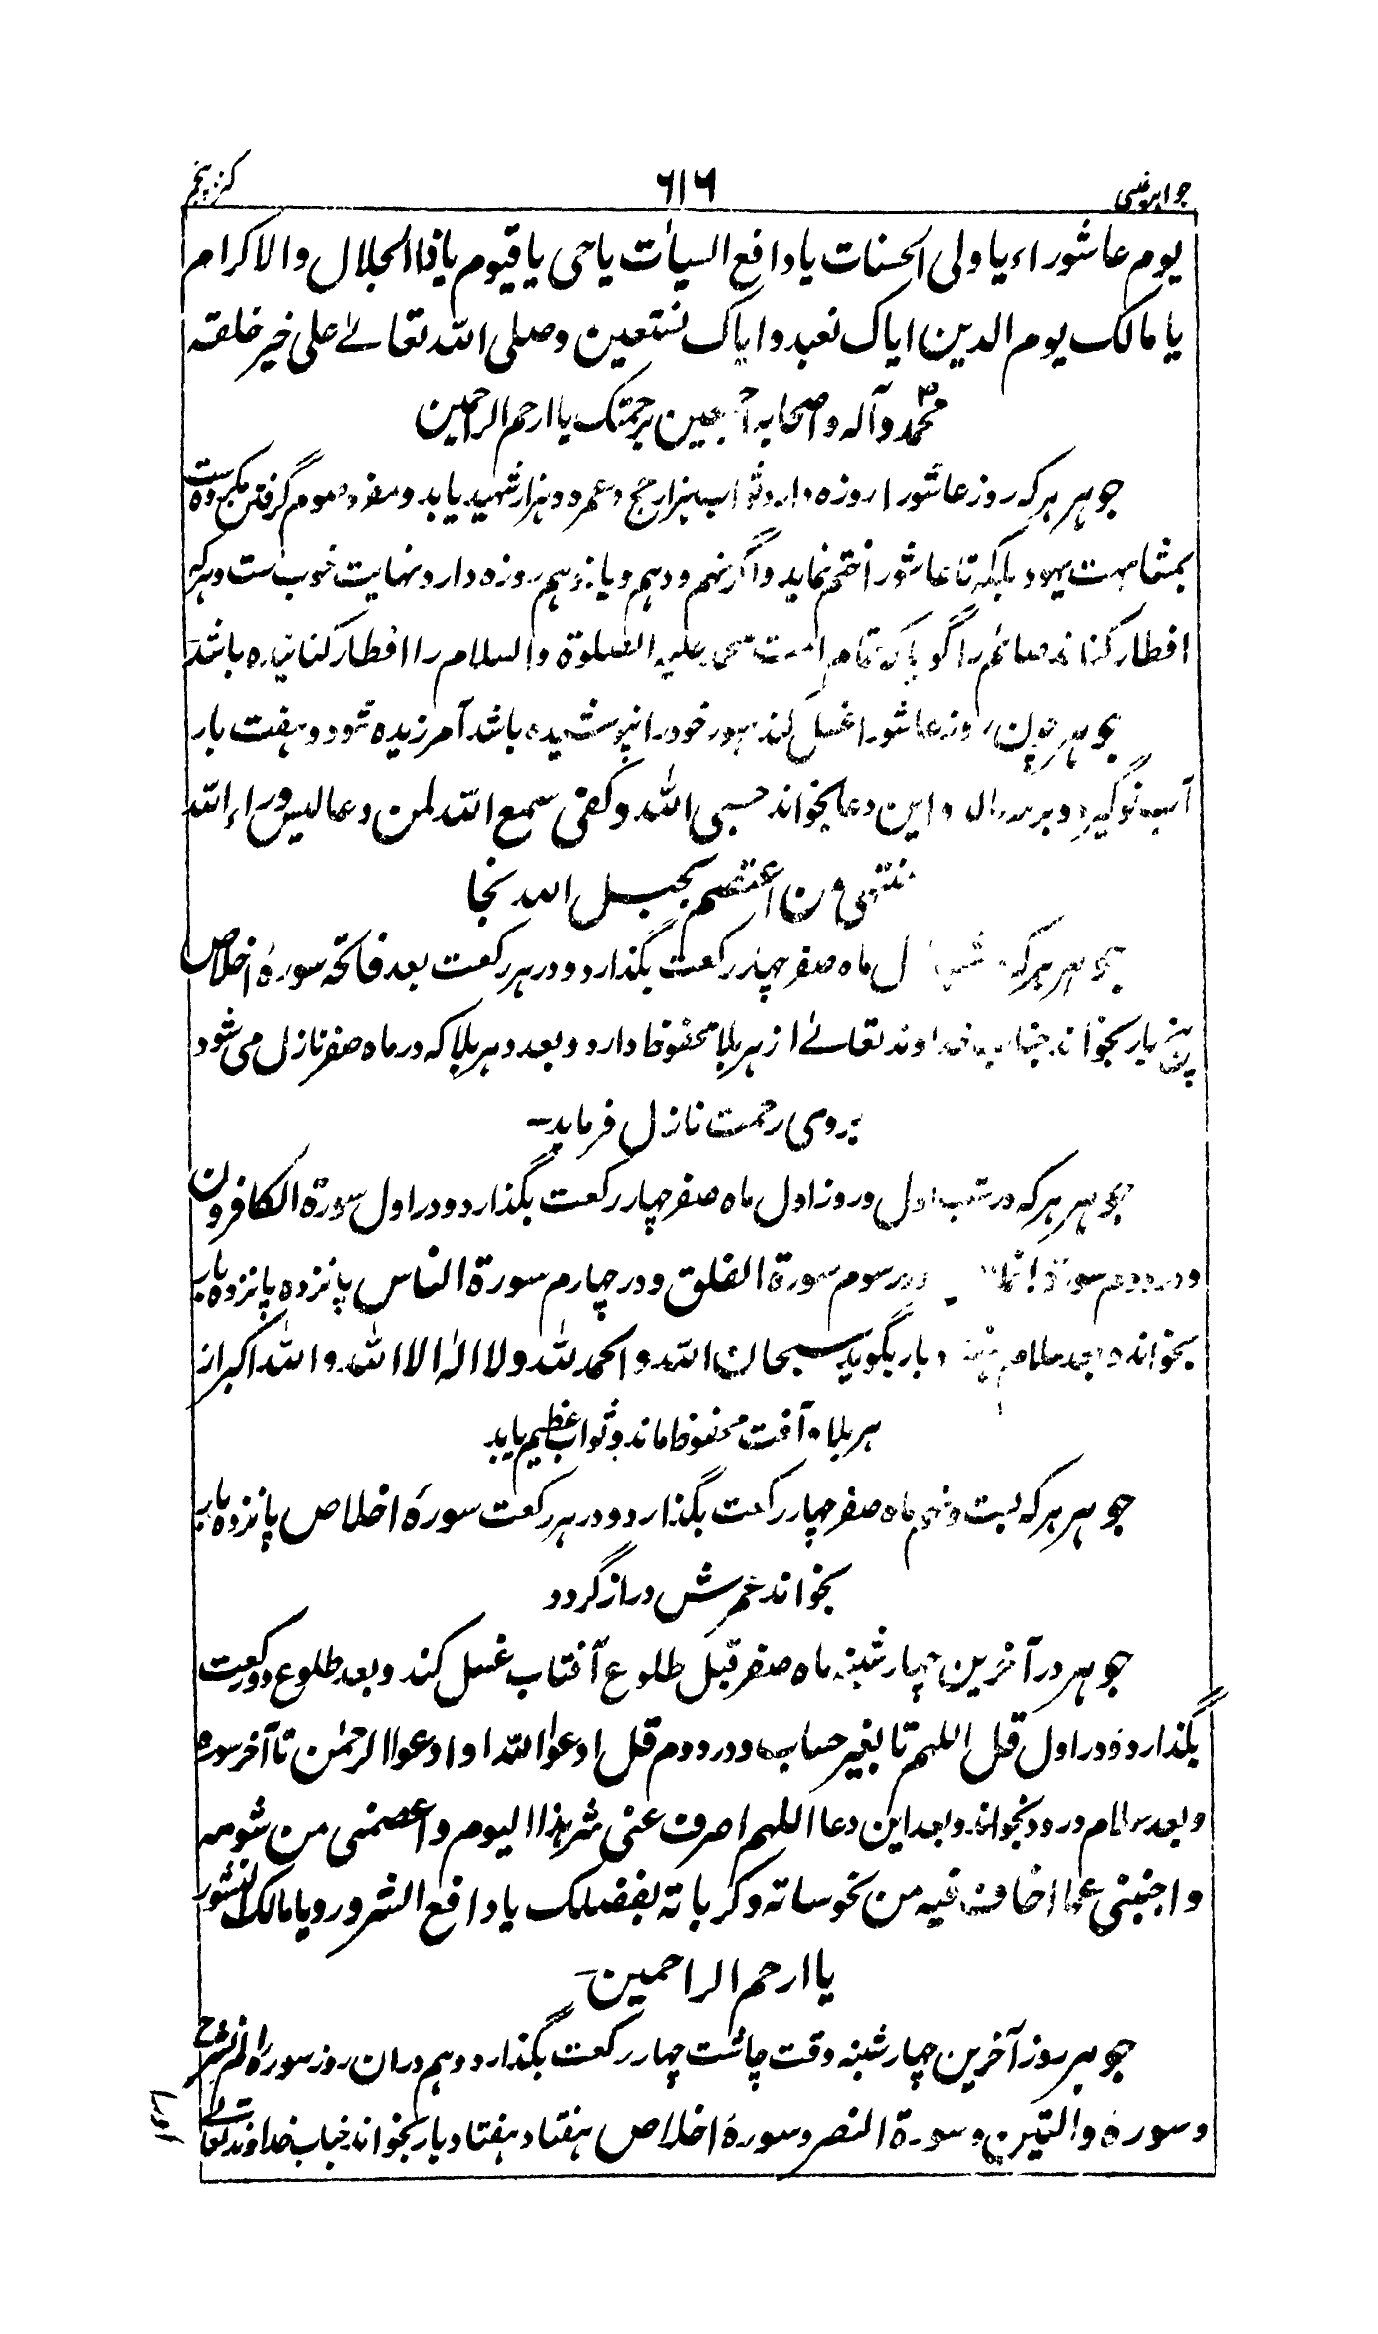 جواهر غیبی ۶۱۶ کنز پنجم
یوم عاشوراء یا ولی الحسنات یا دافع السیأت یا حی یا قیوم یا ذا الجلال والاکرام
یا مالک یوم الدین ایاک نعبد وایاک نستعین وصلی الله تعالے علی خیر خلقه
محمد وآله واصحابه اجمعین برحمتک یا ارحم الراحمین
جوهر هرکه روز عاشورا روزه دارد ثواب هزار حج وعمره وهزار شهید یابد ومفرد صوم گرفتن مکروه ست
بمشابهت یهود بلکه تا عاشورا ختم نماید واگر نهم ودهم ویازدهم روزه دارد نهایت خوب ست وهرکه
افطار کناند صائم را گویا که تمام امت محمد علیه الصلوة والسلام را افطار کنانیده باشد
جوهر چون روز عاشورا غسل کند خود را نپوشیده باشد آمرزیده شود وهفت بار
آب نو گیرد وبر سر و این دعا بخواند حسبی الله وکفی سمع الله لمن دعا لیس وراء الله
منتهی من اعتصم بحبل الله نجا
جوهر هرکه شب ماه صفر چهار رکعت بگذارد ودر هر رکعت بعد فاتحه سورهٔ اخلاص
پنج بار بخواند جناب خداوند تعالے از هر بلا محفوظ دارد وبعدد هر بلا که در ماه صفر نازل می شود
بروی رحمت نازل فرماید
جوهر هرکه در شب اول وروز اول ماه صفر چهار رکعت بگذارد ودر اول سورة الکافرون
ودر دوم سورة ودر سوم سورة الفلق ودر چهارم سورة الناس پانزده پانزده بار
بخواند وبعد سلام بار بگوید سبحان الله والحمد لله ولا اله الا الله والله اکبر از
هر بلا وآفت محفوظ ماند وثواب عظیم یابد
جوهر هرکه بست ونهم ماه صفر چهار رکعت بگذارد ودر هر رکعت سورهٔ اخلاص پانزده بار
بخواند عمرش دراز گردد
جوهر در آخرین چهارشنبه ماه صفر قبل طلوع آفتاب غسل کند وبعد طلوع دو رکعت
بگذارد ودر اول قل اللهم تا بغیر حساب ودر دوم قل ادعوا الله او ادعوا الرحمن تا آخر سوره
وبعد سلام درود بخواند وبعد این دعا اللهم اصرف عنی شر هذا الیوم واعصمنی من شومه
واجنبنی عما اخاف فیه من نحوساته وکرباته بفضلک یا دافع الشرور ویا مالک النشور
یا ارحم الراحمین
جوهر روز آخرین چهارشنبه وقت چاشت چهار رکعت بگذارد وهم دران روز سورهٔ الم نشرح
وسورهٔ والتین وسورة النصر وسورهٔ اخلاص هفتاد هفتاد بار بخواند جناب خداوند تعالے
اورا